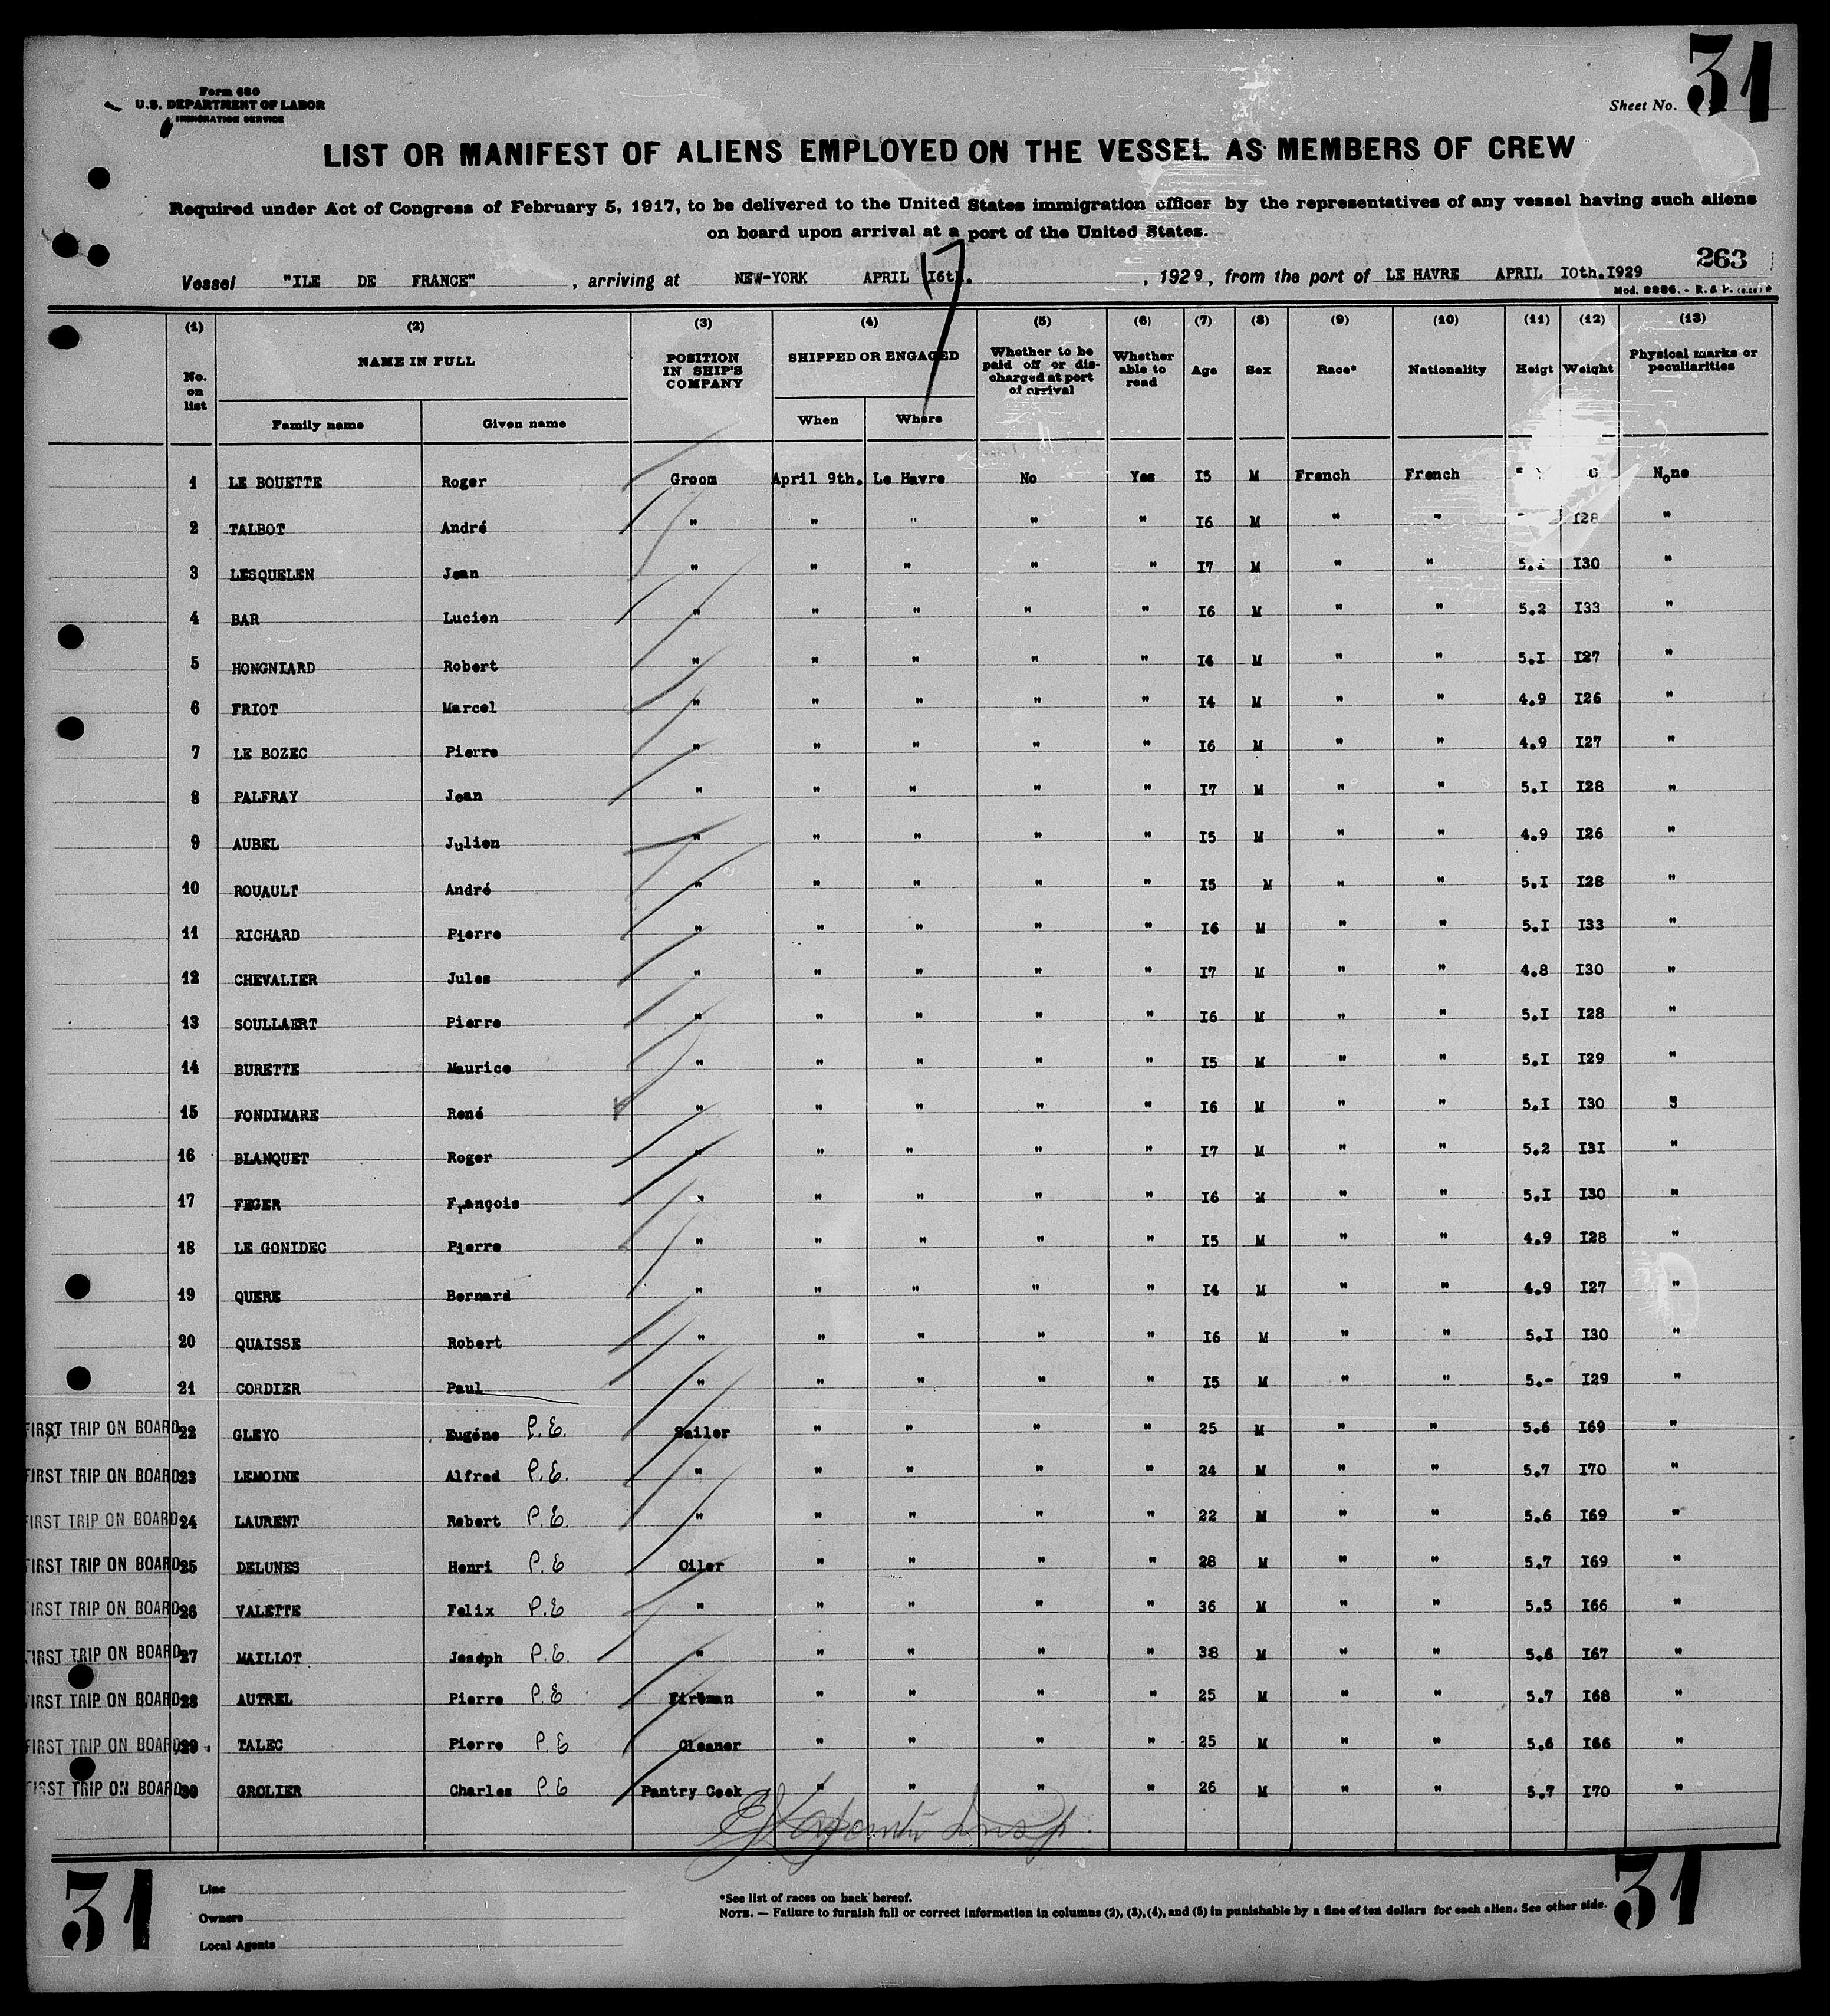 Form 680
U.S. DEPARTMENT OF LABOR
IMMIGRATION SERVICE
Sheet No. 31
LIST OR MANIFEST OF ALIENS EMPLOYED ON THE VESSEL AS MEMBERS OF CREW
Required under Act of Congress of February 5, 1917, to be delivered to the United States immigration officer by the representatives of any vessel having such aliens
on board upon arrival at a port of the United States.
263
Vessel "ILE DE FRANCE", arriving at NEW-YORK APRIL I6th. 17, 1929, from the port of LE HAVRE APRIL I0th.I929
Mod. 2286. - R. & P.
(1) (2) (3) (4) (5) (6) (7) (8) (9) (10) (11) (12) (13)
No. on list NAME IN FULL Family name Given name POSITION IN SHIP'S COMPANY SHIPPED OR ENGAGED When Where Whether to be paid off or discharged at port of arrival Whether able to read Age Sex Race* Nationality Heigt Weight Physical marks or peculiarities
1 LE BOUETTE Roger Groom April 9th. Le Havre No Yes I5 M French French None
2 TALBOT André " " " " " I6 M " " I28 "
3 LESQUELEN Jean " " " " " I7 M " " 5.I I30 "
4 BAR Lucien " " " " " I6 M " " 5.2 I33 "
5 HONGNIARD Robert " " " " " I4 M " " 5.I I27 "
6 FRIOT Marcel " " " " " I4 M " " 4.9 I26 "
7 LE BOZEC Pierre " " " " " I6 M " " 4.9 I27 "
8 PALFRAY Jean " " " " " I7 M " " 5.I I28 "
9 AUBEL Julien " " " " " I5 M " " 4.9 I26 "
10 ROUAULT André " " " " " I5 M " " 5.I I28 "
11 RICHARD Pierre " " " " " I6 M " " 5.I I33 "
12 CHEVALIER Jules " " " " " I7 M " " 4.8 I30 "
13 SOULLAERT Pierre " " " " " I6 M " " 5.I I28 "
14 BURETTE Maurice " " " " " I5 M " " 5.I I29 "
15 FONDIMARE René " " " " " I6 M " " 5.I I30 "
16 BLANQUET Roger " " " " " I7 M " " 5.2 I3I "
17 FEGER François " " " " " I6 M " " 5.I I30 "
18 LE GONIDEC Pierre " " " " " I5 M " " 4.9 I28 "
19 QUERE Bernard " " " " " I4 M " " 4.9 I27 "
20 QUAISSE Robert " " " " " I6 M " " 5.I I30 "
21 CORDIER Paul " " " " " I5 M " " 5.- I29 "
FIRST TRIP ON BOARD 22 GLEYO Eugéne P.E. Sailor " " " " 25 M " " 5.6 I69 "
FIRST TRIP ON BOARD 23 LEMOINE Alfred P.E. " " " " " 24 M " " 5.7 I70 "
FIRST TRIP ON BOARD 24 LAURENT Robert P.E. " " " " " 22 M " " 5.6 I69 "
FIRST TRIP ON BOARD 25 DELUNES Henri P.E Oiler " " " " 28 M " " 5.7 I69 "
FIRST TRIP ON BOARD 26 VALETTE Felix P.E " " " " " 36 M " " 5.5 I66 "
FIRST TRIP ON BOARD 27 MAILLOT Joseph P.E. " " " " " 38 M " " 5.6 I67 "
FIRST TRIP ON BOARD 28 AUTREL Pierre P.E Fireman " " " " 25 M " " 5.7 I68 "
FIRST TRIP ON BOARD 29 TALEC Pierre P.E Cleaner " " " " 25 M " " 5.6 I66 "
FIRST TRIP ON BOARD 30 GROLIER Charles P.E Pantry Cook " " " " 26 M " " 5.7 I70 "
31 31
Line
Owners
Local Agents
*See list of races on back hereof.
NOTE. — Failure to furnish full or correct information in columns (2), (3), (4), and (5) in punishable by a fine of ten dollars for each alien. See other side.